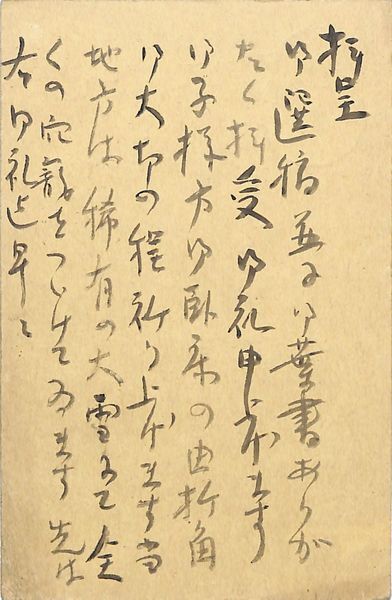 拝呈
御選稿並に御葉書ありが
たく拝受御礼申上げます
御子様方御臥床の由折角
御大切の程祈り上げます当
地方は稀有の大雪にて全
くの穴籠をつゞけてゐます先は
右御礼迄早々